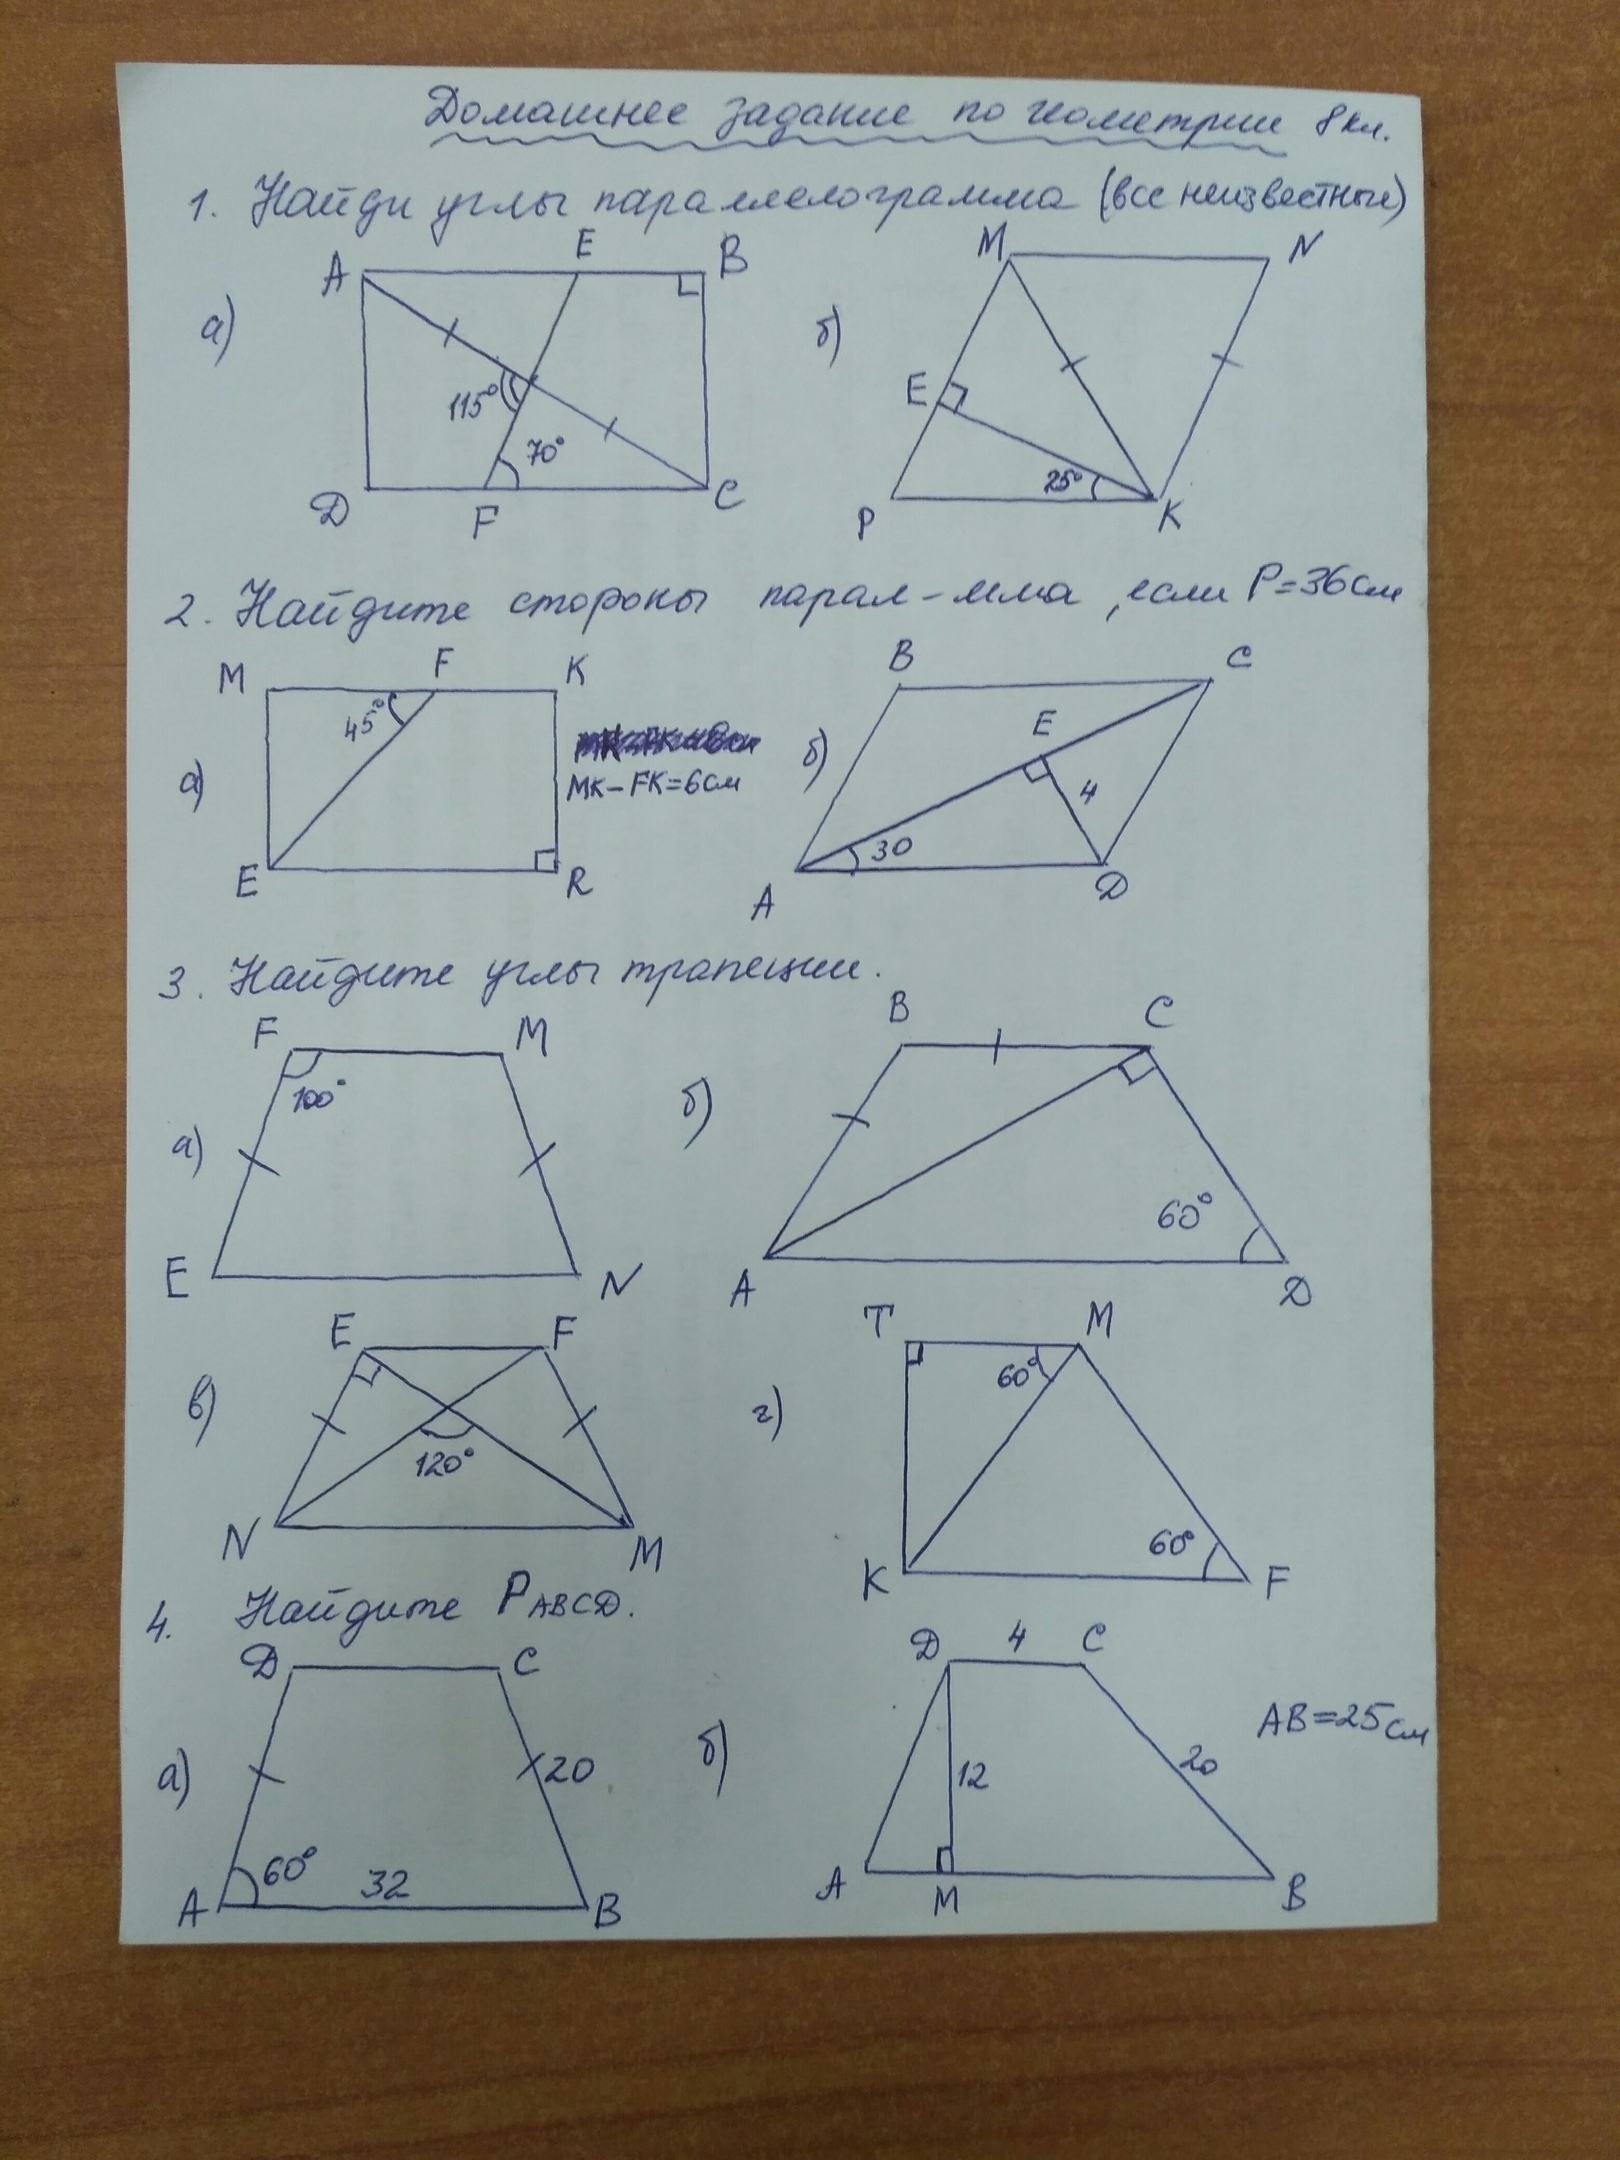 Домашнее задание по геометрии 8 кл.
1. Найди углы параллелограмма (все неизвестные)
а)
A E B
115°
70°
D F C
б)
M N
E
25°
P K
2. Найдите стороны парал-мма, если P=36см
а)
M F K
45°
MK-FK=6см
E R
б)
B C
E
4
30
A D
3. Найдите углы трапеции.
а)
F M
100°
E N
б)
B C
60°
A D
в)
E F
120°
N M
г)
T M
60°
60°
K F
4. Найдите P ABCD.
а)
D C
20
60°
32
A B
б)
D 4 C
AB=25см
12
20
A M B